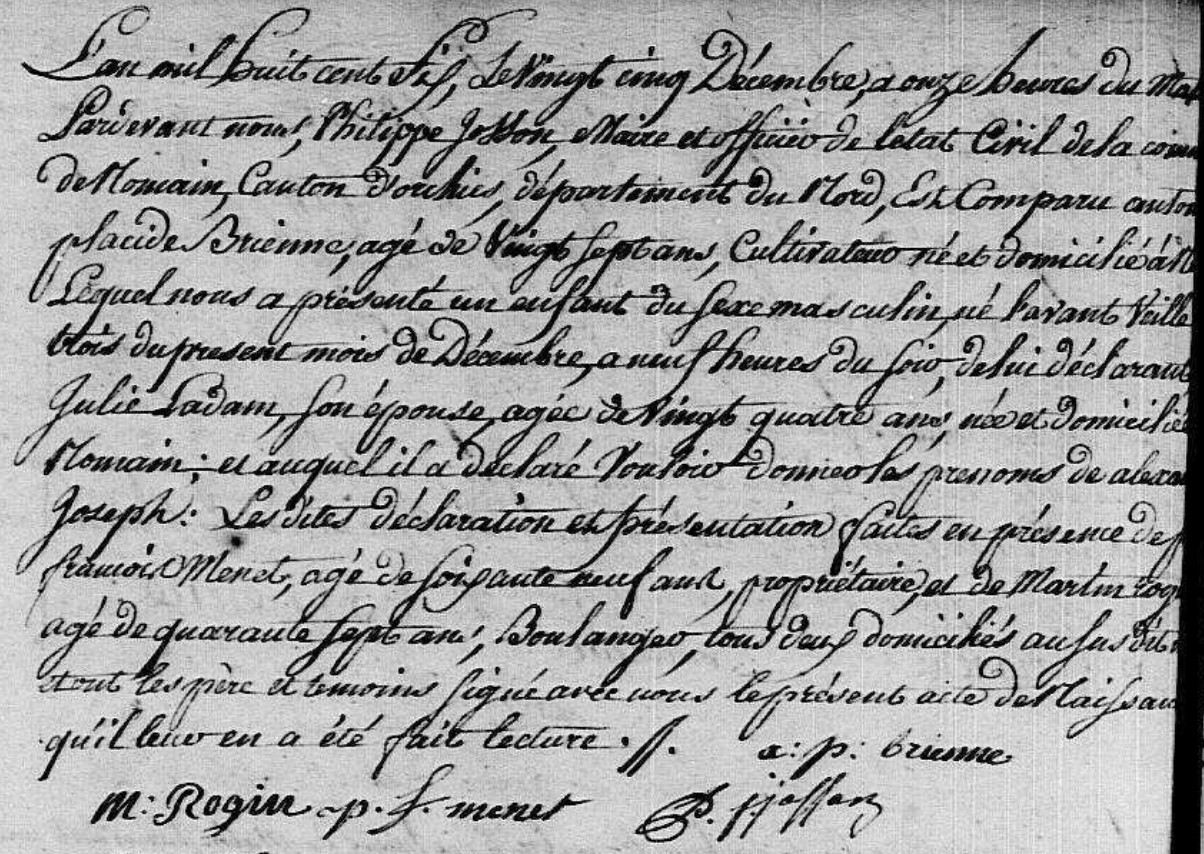 L'an mil huit cent Six, Le Vingt cinq Décembre, a onze heures du Ma
Pardevant nous, Philippe Josson, Maire et officier de létat Civil de la com
de Nomain, Canton d'orchies, départiment du Nord, Est Comparu anto
placide Brienne, agé de Vingt Sept ans, Cultivateur né et domicilié à N
Lequel nous a présenté un enfant du Sexe masculin, né L'avant Veille
trois du present mois de Décembre, a neuf heures du Soir, de lui déclarant
Julie Ladam, Son épouse, agée de Vingt quatre ans, née et domiciliée
Nomain; et auquel il a déclaré Vouloir donner les prenoms de alexa
Joseph: Les dites déclaration et présentation faites en présence de p
francois Menet, agé de Soixante neuf ans, propriétaire, et de Martin rog
agé de quarante Sept ans, Boulanger, tous deux domiciliés au Sus dit
et ont les père et temoins Signé avec nous le présent acte de Naissan
qu'il leur en a été fait lecture. //. a: p: brienne
M: Rogin p. f. menet P. J josson